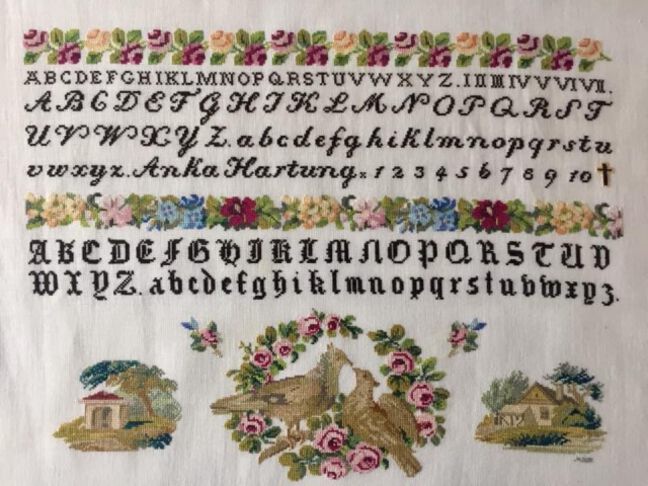 ABCDEFGHIKLMNOPQRSTUVWXYZ.IIIIIIVVVIVII.
ABCDEFGHIKLMNOPQRST
UVWXYZ.abcdefghiklmnopqrstu
vwxyz. Anka Hartung. 1 2 3 4 5 6 7 8 9 10 ✝
ABCDEFGHIKLMNOPQRSTUV
WXYZ.abcdefghiklmnopqrstuvwxyz.